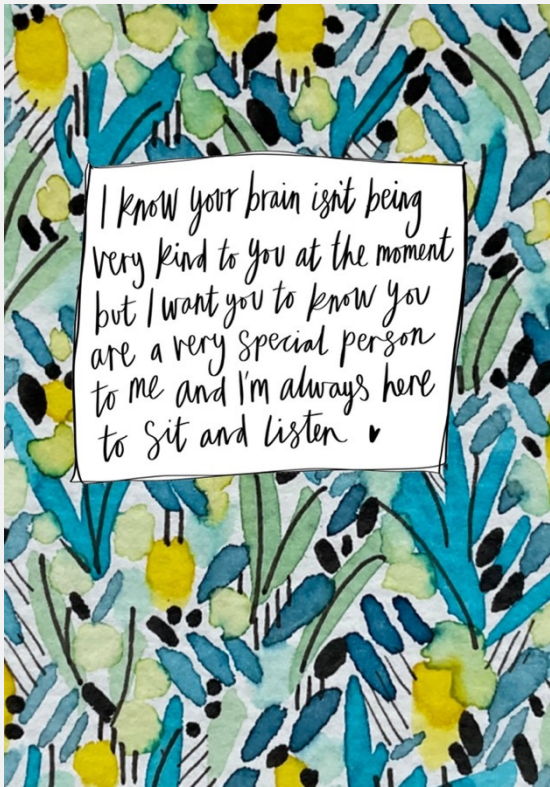 I know your brain isn't being
very kind to you at the moment
but I want you to know you
are a very special person
to me and I'm always here
to sit and listen ♥